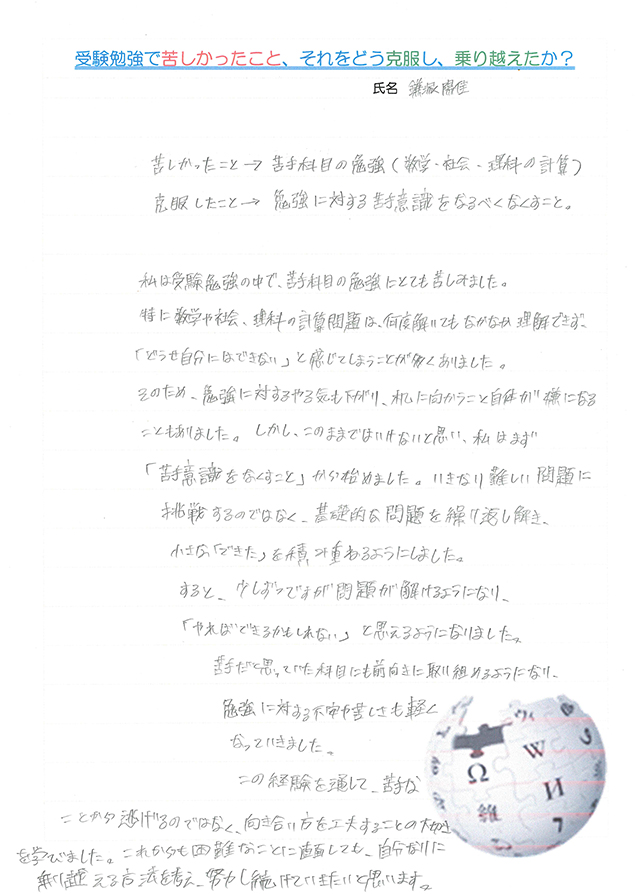 受験勉強で苦しかったこと、それをどう克服し、乗り越えたか？
氏名
苦しかったこと→ 苦手科目の勉強（数学・社会・理科の計算）
克服したこと→ 勉強に対する苦手意識をなるべくなくすこと。
私は受験勉強の中で、苦手科目の勉強にとても苦しみました。
特に数学や社会、理科の計算問題は、何度解いてもなかなか理解できず、
「どうせ自分にはできない」と感じてしまうことが多くありました。
そのため、勉強に対するやる気も下がり、机に向かうこと自体が嫌になる
こともありました。しかし、このままではいけないと思い、私はまず
「苦手意識をなくすこと」から始めました。いきなり難しい問題に
挑戦するのではなく、基礎的な問題を繰り返し解き、
小さな「できた」を積み重ねるようにしました。
すると、少しずつですが問題が解けるようになり、
「やればできるかもしれない」と思えるようになりました。
苦手だと思っていた科目にも前向きに取り組めるようになり、
勉強に対する不安や苦しさも軽く
なっていきました。
この経験を通して、苦手な
ことから逃げるのではなく、向き合い方を工夫することの大切さ
を学びました。これからも困難なことに直面しても、自分なりに
乗り越える方法を考え、努力し続けていきたいと思います。
Ω
W
И
維
ウィ